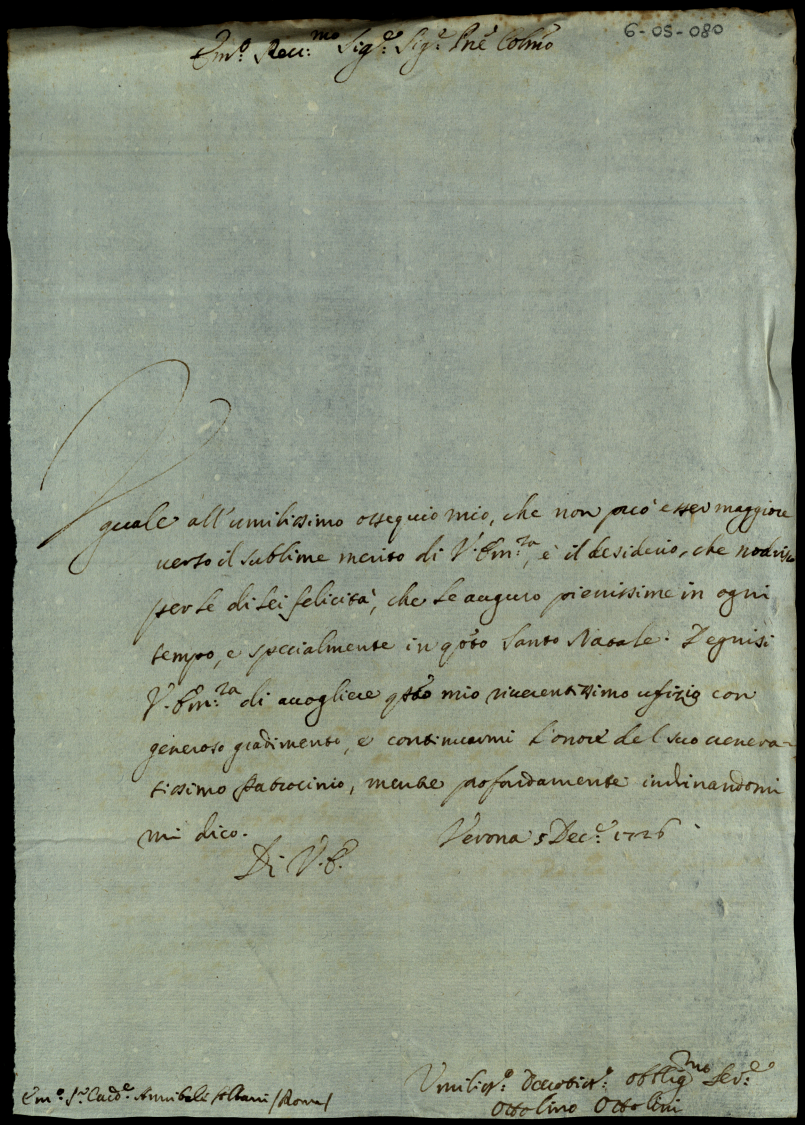 6-05-080
Em.o Reu:mo Sig.e Sig.e Pr͞ne Colmo
Eguale all'umilissimo ossequio mio, che non può esser maggiore
verso il sublime merito di V. Em:za, è il desiderio, che nodrisco
per le di Lei felicità, che Le auguro pienissime in ogni
tempo, e specialmente in qsto Santo Natale. Degnisi
V. Em:za di accogliere qsto mio riverentissimo ufizio con
generoso gradimento, e continuarmi l'onore del suo venera-
tissimo Patrocinio, mentre profondamente inchinandomi
mi dico.
Verona 5 Dec.e 1726
Di V. E.
Umilis.o Devotis.o Obblig.mo Ser.e
Ottolino Ottolini
Em.o S.r Card.e Annibale Albani / Roma /